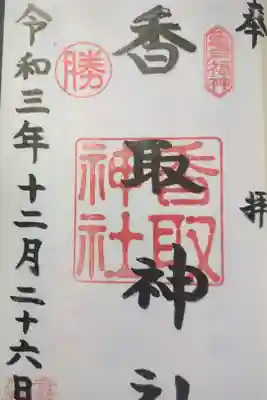 奉拝
香取神社
香取神社
勝
令和三年十二月二十六日